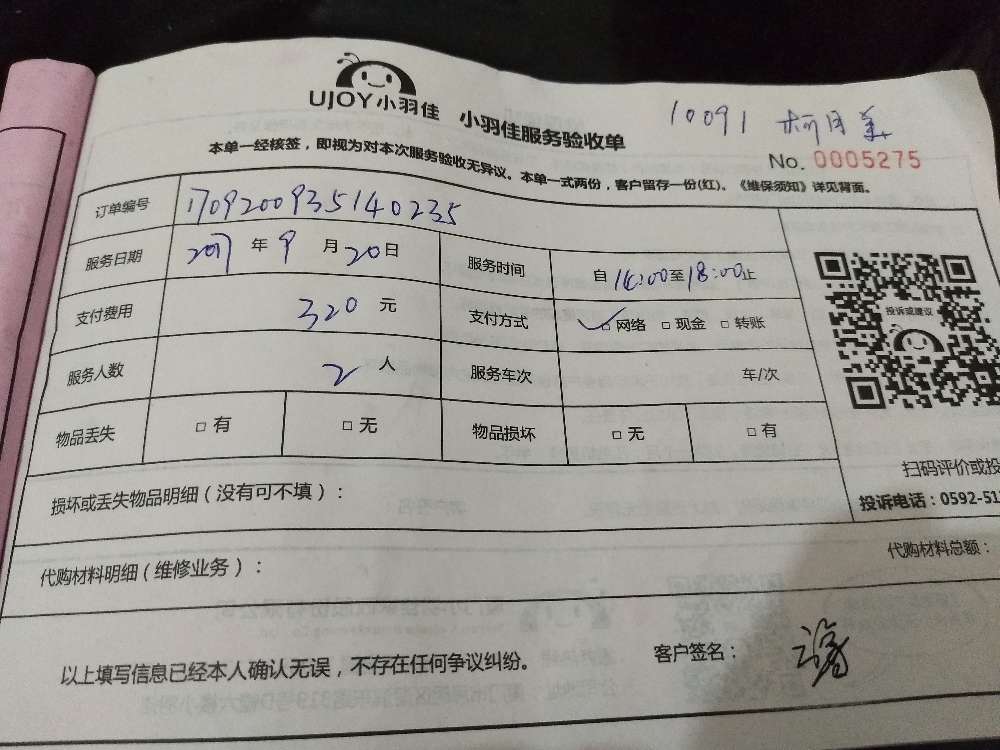 UJOY小羽佳 小羽佳服务验收单
10091
No. 0005275
本单一经核签，即视为对本次服务验收无异议。本单一式两份，客户留存一份(红)。《维保须知》详见背面。
订单编号 170920093514 0235
服务日期 2017 年 9 月 20 日 服务时间 自 14:00 至 18:00 止
支付费用 320 元 支付方式 ✓□ 网络 □ 现金 □ 转账
服务人数 2 人 服务车次 车/次
物品丢失 □ 有 □ 无 物品损坏 □ 无 □ 有
投诉或建议
扫码评价或投
投诉电话：0592-51
损坏或丢失物品明细（没有可不填）：
代购材料明细（维修业务）： 代购材料总额：
以上填写信息已经本人确认无误，不存在任何争议纠纷。 客户签名：